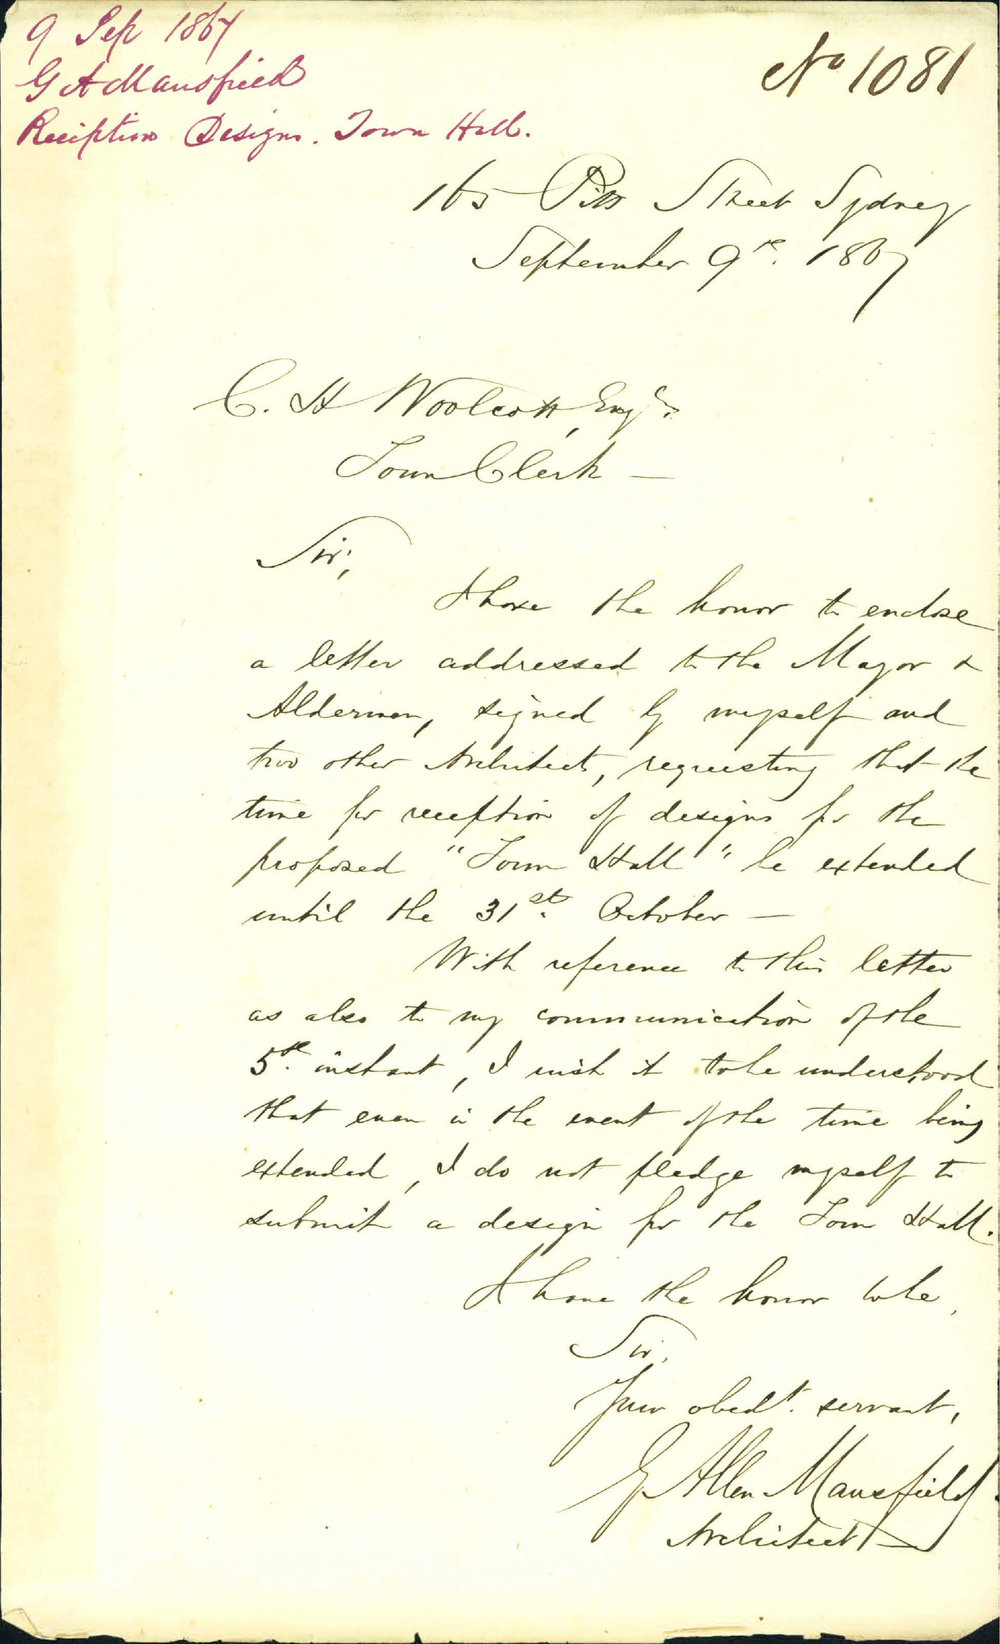 9 Sep 1867
G A Mansfield
Reception Designs. Town Hall.
No 1081
165 Pitt Street Sydney
September 9th. 1867
C. H Woolcott, Esqr.
Town Clerk —
Sir,
I have the honor to enclose
a letter addressed to the Mayor &
Aldermen, signed by myself and
two other Architects, requesting that the
time for reception of designs for the
proposed "Town Hall" be extended
until the 31st. October —
With reference to this letter
as also to my communication of the
5th. instant, I wish it to be understood
that even in the event of the time being
extended, I do not pledge myself to
submit a design for the Town Hall.
I have the honor to be,
Sir,
Your obedt. servant,
G Allen Mansfield
Architect